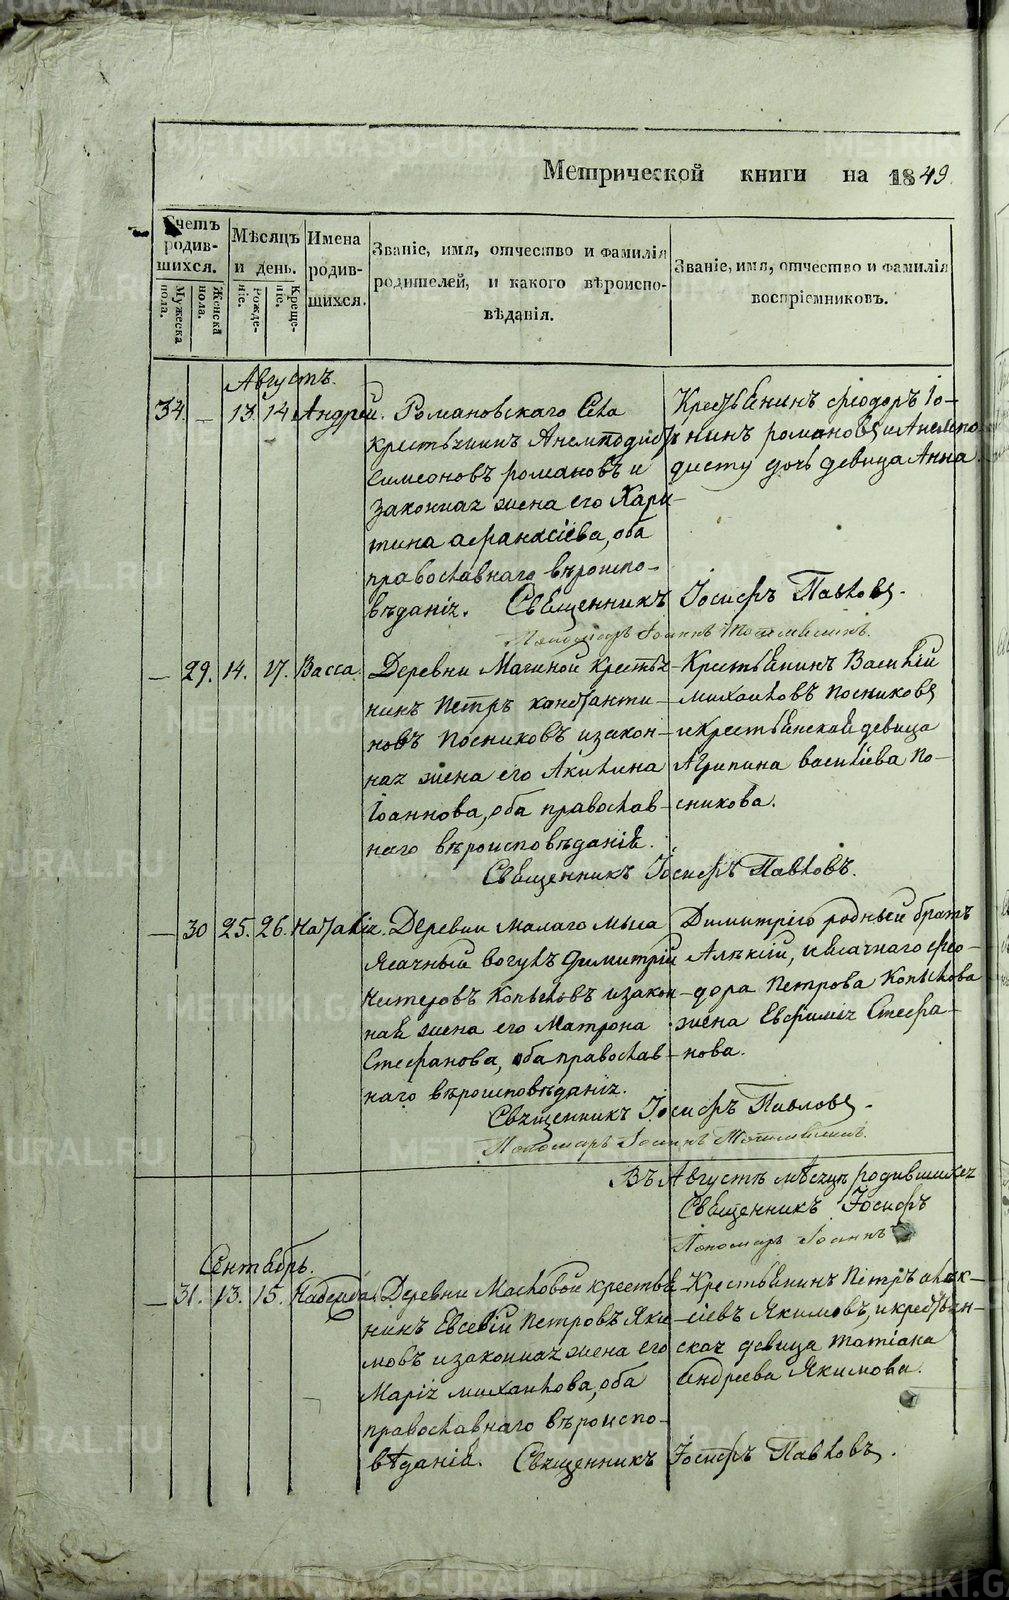 Метрической книги на 1849.
Счетъ родившихся.
Мѣсяцъ и день.
Имена родившихся.
Званіе, имя, отчество и фамилія родителей, и какого вѣроисповѣданія.
Званіе, имя, отчество и фамилія воспріемниковъ.
Мужеска пола.
Женска пола.
Рожденіе.
Крещеніе.
Августъ.
34. — 13. 14 Андрей. Романовскаго Села
крестьянинъ Анемподистъ
Симеоновъ романовъ и
законная жена его Хари-
тина афанасіева, оба
православнаго вѣроиспо-
вѣданія.
Крестьянинъ феодоръ Іо-
нинъ романовъ и Анемпо
дисту дочь девица Анна
Священникъ Іосифъ Павловъ.
Пономарь Іоаннъ
— 29. 14. 17. Васса. Деревни Магиной крестья-
нинъ Петръ константи-
новъ Посниковъ и закон-
ная жена его Акилина
Іоаннова, оба православ-
наго вѣроисповѣданія.
Крестьянинъ Василій
михаиловъ Посниковъ
и крестьянская девица
Агрипина васильева По-
сникова.
Священникъ Іосифъ Павловъ.
— 30 25. 26. Наталія. Деревни малаго мыса
Ясачный вогулъ Димитрій
Петровъ Копьсовъ и закон-
ная жена его Матрона
Стефанова, оба православ-
наго вѣроисповѣданія.
Димитріего родный братъ
Алѣкій, и ясачнаго фео-
дора Петрова Копысова
жена Евфимія Стефа-
нова.
Священникъ Іосифъ Павловъ.
Пономарь Іоаннъ
Въ Августѣ мѣсяцѣ родившихся
Священникъ Іосифъ
Пономарь Іоаннъ
Сентябрь.
— 31. 13. 15. Надежда. Деревни Масловой крестья-
нинъ Евсевій Петровъ Яки-
мовъ и законная жена его
Марія михаилова, оба
православнаго вѣроиспо-
вѣданія.
Крестьянинъ Петръ алѣк-
сіевъ Якимовъ, и крестьян-
ская девица татіана
Андреева Якимова.
Священникъ Іосифъ Павловъ.
METRIKI.GASO-URAL.RU